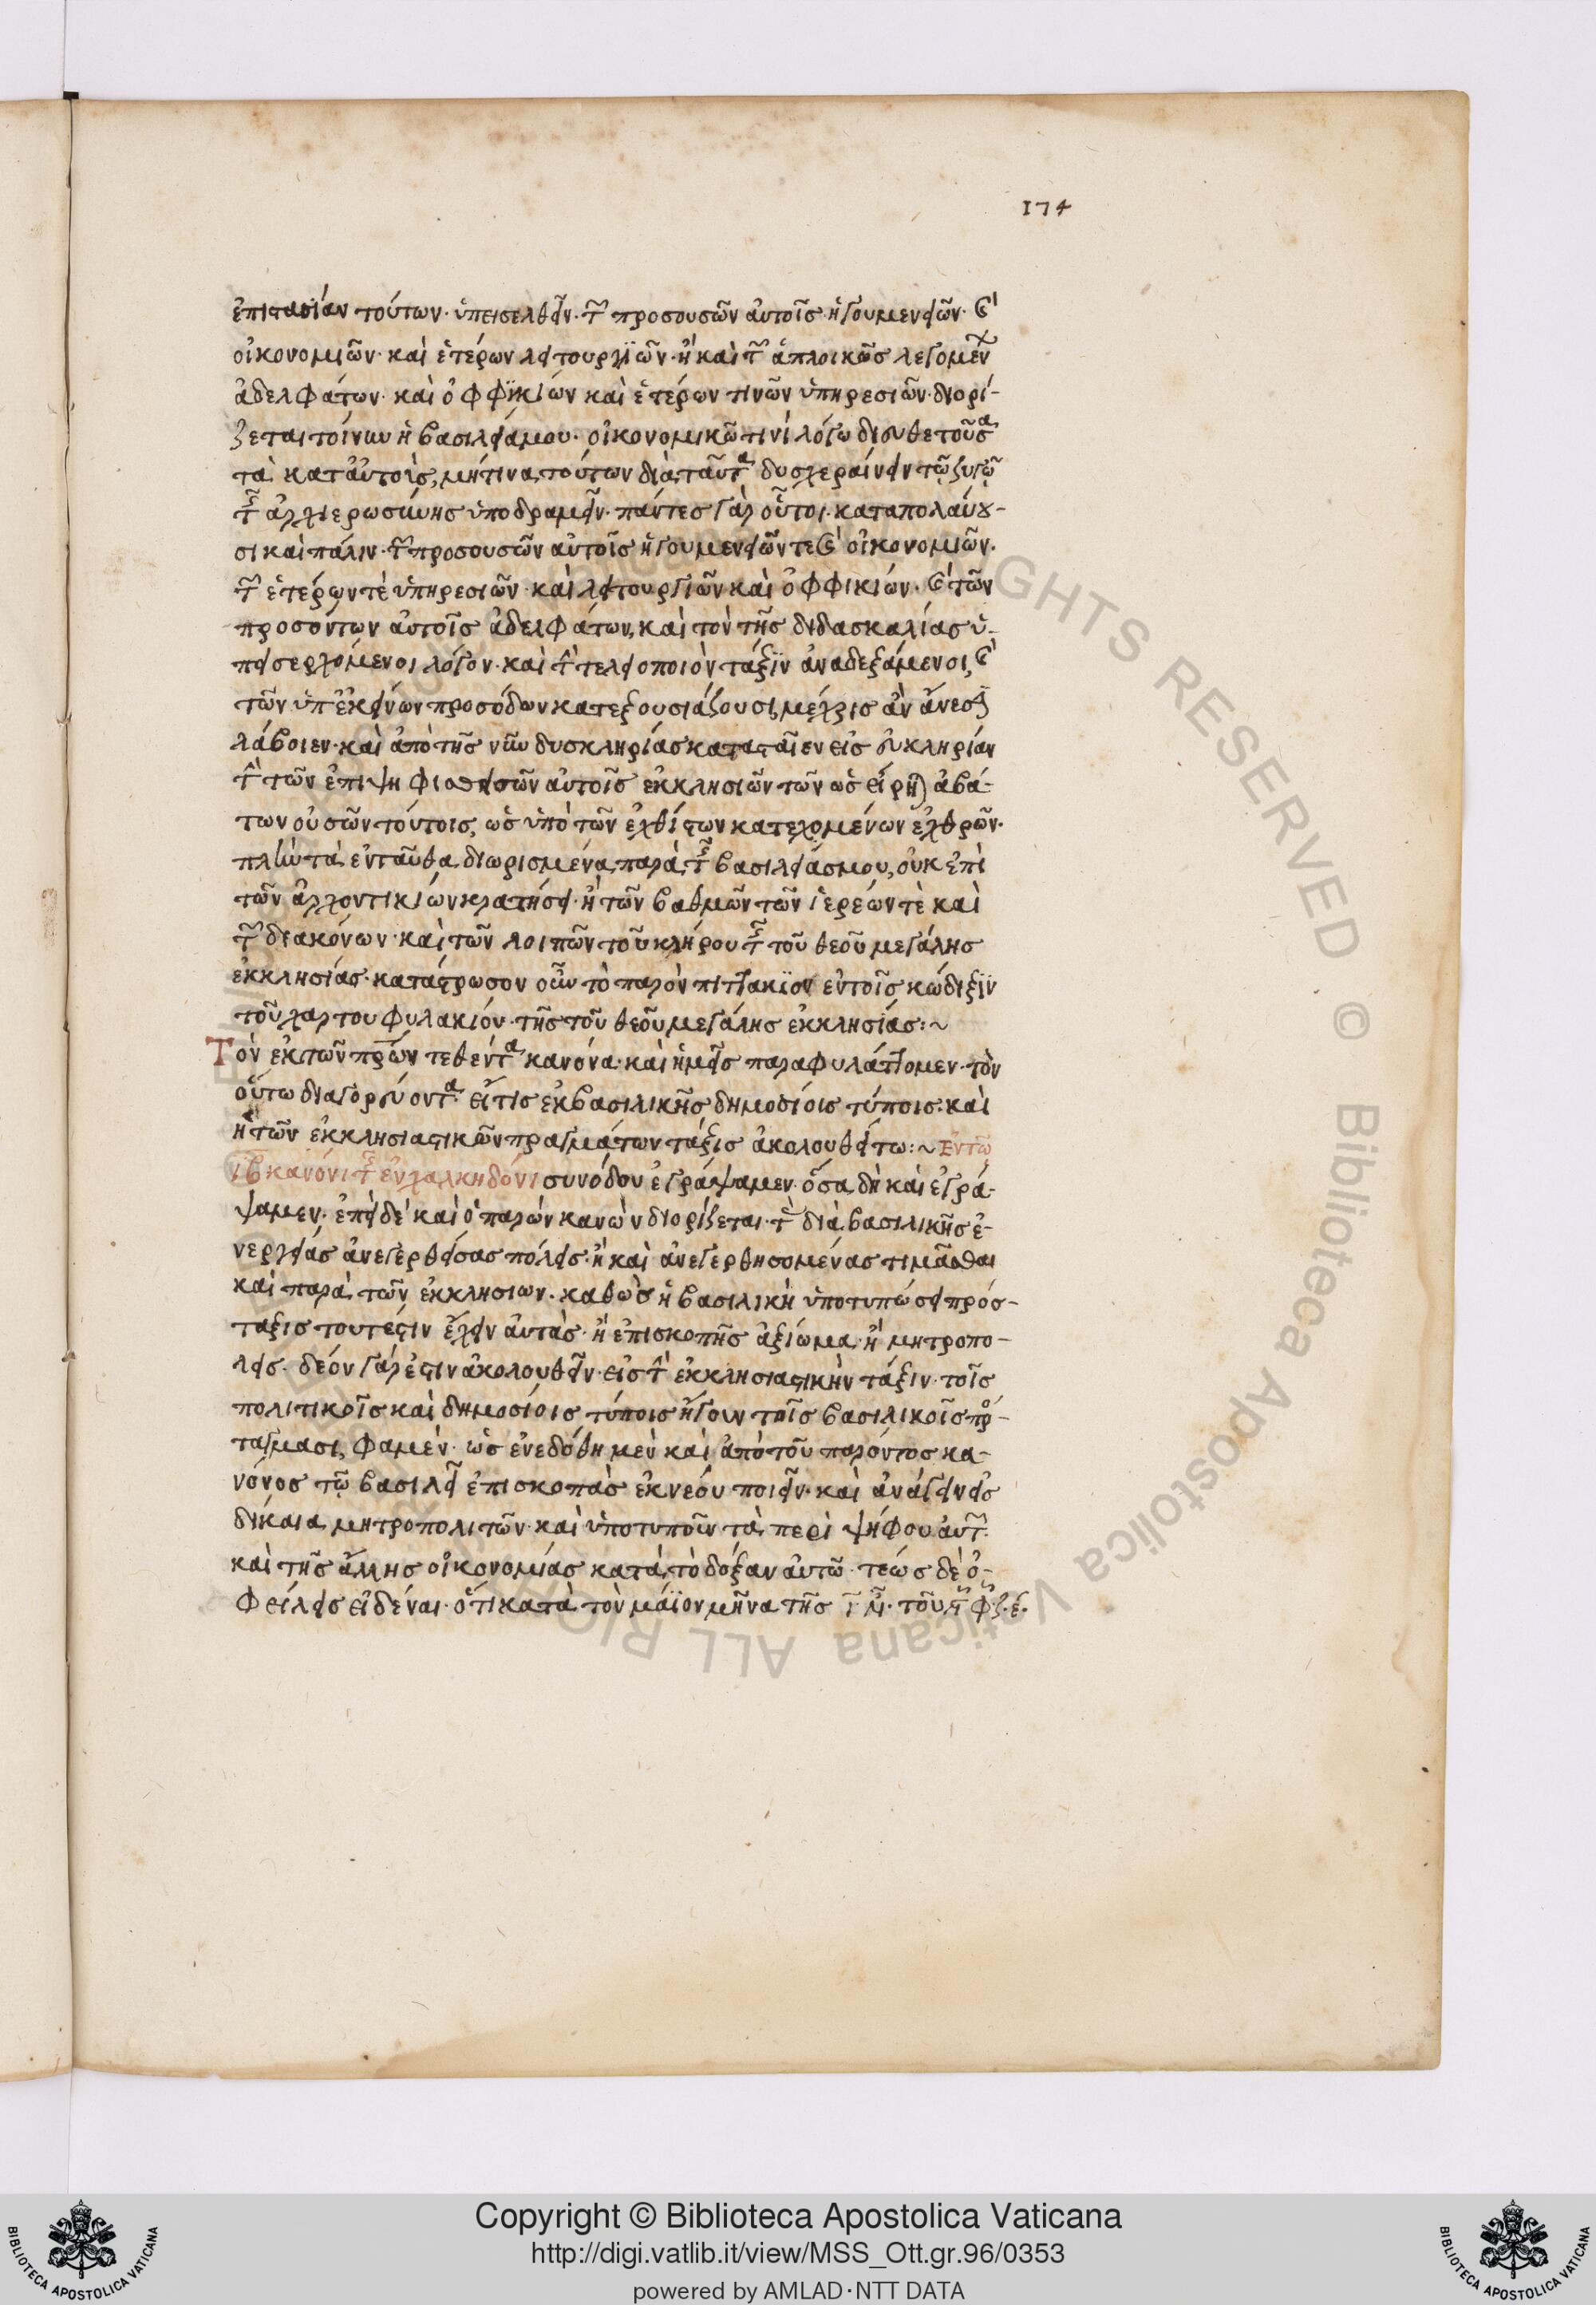 174
ἐπιτασίαν τούτων· ὑπεισελθεῖν· τῶν προσουσῶν αὐτοῖς ἡγουμενειῶν· καὶ
οἰκονομιῶν· καὶ ἑτέρων λειτουργϊῶν· ἢ καὶ τῶν ἁπλοικῶς λεγομένων
ἀδελφάτων· καὶ ὀφφϊκίων καὶ ἑτέρων τινῶν ὑπηρεσιῶν· διορί-
ζεται τοίνυν ἡ βασιλεία μου· οἰκονομικῶ τινὶ λόγω διευθετοῦσα
τὰ κατ' αὐτοὺς, μή τινα τούτων διὰ ταῦτα δυσχεραίνειν τῶ ζυγῶ
τῆς ἀρχιερωσύνης ὑποδραμεῖν· πάντες γὰρ οὗτοι· καταπολαύου-
σι καὶ πάλιν· τῶν προσουσῶν αὐτοῖς ἡγουμενειῶν τε καὶ οἰκονομιῶν·
τῶν ἑτέρων τὲ ὑπηρεσιῶν· καὶ λειτουργιῶν καὶ ὀφφικίων· καὶ τῶν
προσόντων αὐτοῖς ἀδελφάτων, καὶ τὸν τῆς διδασκαλίας ὑ-
πεισερχόμενοι λόγον· καὶ τὴν τελειοποιὸν τάξϊν ἀναδεξάμενοι, καὶ
τῶν ὑπ' ἐκείνων προσόδων κατεξουσιάζουσι, μέχρις ἂν ἄνεσιν
λάβοιεν· καὶ ἀπὸ τῆς νῦν δυσκληρίας κατασταῖεν εἰς εὐκληρίαν
τὴν τῶν ἐπιψηφισθεισῶν αὐτοῖς ἐκκλησιῶν τῶν ὡς εἴρηται ἀβά-
των οὐσῶν τούτοις, ὡς ὑπὸ τῶν ἐχθίστων κατεχομένων ἐχθρῶν·
πλὴν τὰ ἐνταῦθα διωρισμένα παρὰ τῆς βασιλείας μου, οὐκ ἐπὶ
τῶν ἀρχοντικίων κρατήσει· ἢ τῶν βαθμῶν τῶν ἱερέων τὲ καὶ
τῶν διακόνων· καὶ τῶν λοιπῶν τοῦ κλήρου τῆς τοῦ θεοῦ μεγάλης
ἐκκλησίας· κατάστρωσον οὖν τὸ παρὸν πιττάκϊον ἐν τοῖς κώδιξϊν
τοῦ χαρτουφυλακίου· τῆς τοῦ θεοῦ μεγάλης ἐκκλησίας:~
Τὸν ἐκ τῶν πρων τεθέντα κανόνα· καὶ ἡμεῖς παραφυλάττομεν· τὸν
οὕτω διαγορεύοντα· εἴ τις ἐκ βασιλικῆς δημοσίοις τύποις· καὶ
ἡ τῶν ἐκκλησιαστικῶν πραγμάτων τάξις ἀκολουθείτω:~ Ἐν τῶ
ιβ κανόνι τῆς ἐν χαλκηδόνι συνόδου ἐγράψαμεν· ὅσα δὴ καὶ ἐγρά-
ψαμεν· ἐπεὶ δὲ καὶ ὁ παρὼν κανὼν διορίζεται· τὰς διὰ βασιλικῆς ἐ-
νεργείας ἀνεγερθείσας πόλεις· ἢ καὶ ἀνεγερθησομένας τιμᾶσθαι
καὶ παρὰ τῶν ἐκκλησιων· καθὼς ἡ βασιλικὴ ὑποτυπώσει πρόσ-
ταξις τουτέστιν ἔχειν αὐτὰς· ἢ ἐπισκοπῆς ἀξίωμα· ἢ μητροπό-
λεις· δέον γάρ ἐστιν ἀκολουθεῖν· εἰς τὴν ἐκκλησιαστικὴν τάξιν· τοῖς
πολιτικοῖς καὶ δημοσίοις τύποις ἤγουν τοῖς βασιλικοῖς προσ-
τάγμασι, φαμὲν· ὡς ἐνεδόθη μὲν καὶ ἀπὸ τοῦ παρόντος κα-
νόνος τῶ βασιλεῖ ἐπισκοπὰς ἐκ νέου ποιεῖν· καὶ ἀνάγειν εἰς
δίκαια μητροπολιτῶν· καὶ ὑποτυποῦν τὰ περὶ ψήφου αὐτῶν·
καὶ τῆς ἄλλης οἰκονομίας κατὰ τὸ δόξαν αὐτῶ· τέως δὲ ὀ-
φείλεις εἰδέναι· ὅτι κατὰ τὸν μάϊον μῆνα τῆς
Copyright © Biblioteca Apostolica Vaticana
http://digi.vatlib.it/view/MSS_Ott.gr.96/0353
powered by AMLAD·NTT DATA